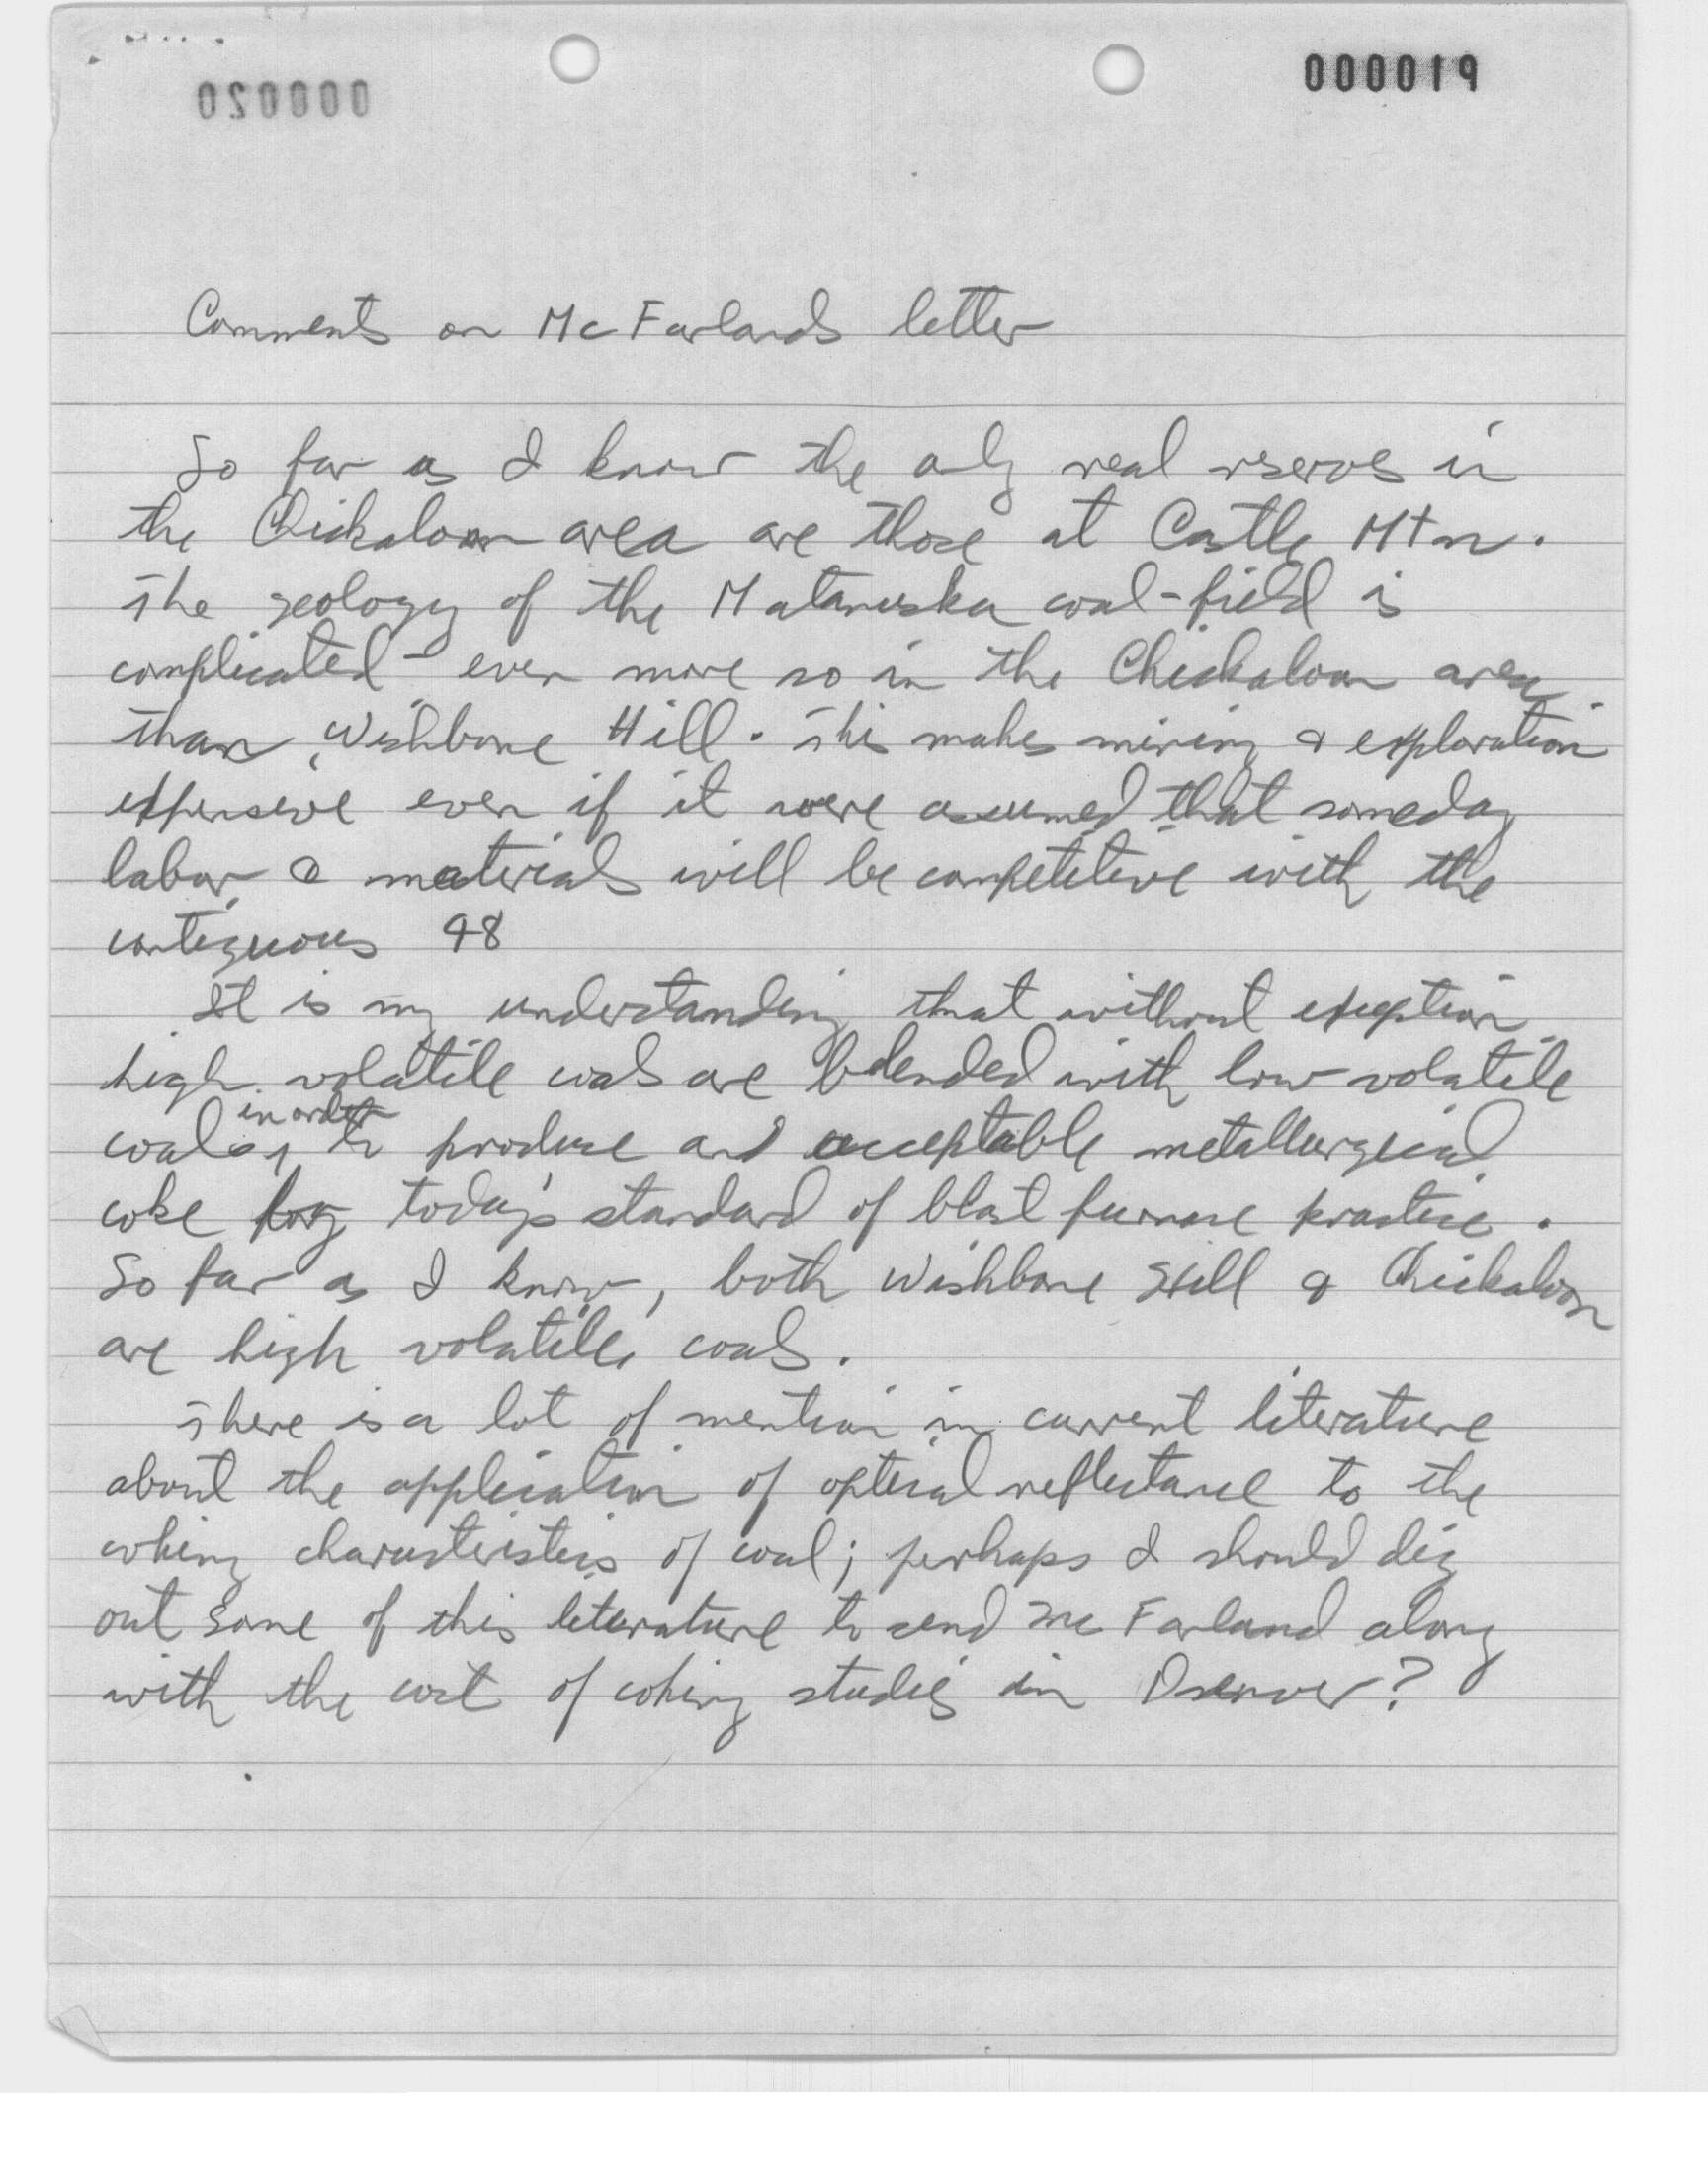 000020
000019
Comments on McFarlands letter
So far as I know the only real reserves in
the Chickaloon area are those at Castle Mtn.
The geology of the Matanuska coal-field is
complicated - even more so in the Chickaloon area
than Wishbone Hill. This makes mining & exploration
expensive even if it were assumed that someday
labor & materials will be competitive with the
contiguous 48
It is my understanding that without exception
high volatile coals are blended with low volatile
coals, in order to produce an acceptable metallurgical
coke for today's standard of blast furnace practice.
So far as I know, both Wishbone Hill & Chickaloon
are high volatile coals.
There is a lot of mention in current literature
about the application of optical reflectance to the
coking characteristics of coal; perhaps I should dig
out some of this literature to send McFarland along
with the cost of coking studies in Denver?